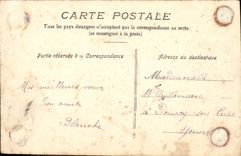 CARTE POSTALE
Tous les pays étrangers n'acceptent pas la correspondance au recto
(se renseigner à la poste)
Partie réservée à la Correspondance
Adresse du destinataire
Mes meilleurs voeux
Ton amie
Blanche
Mademoiselle
M.
à
Yonne